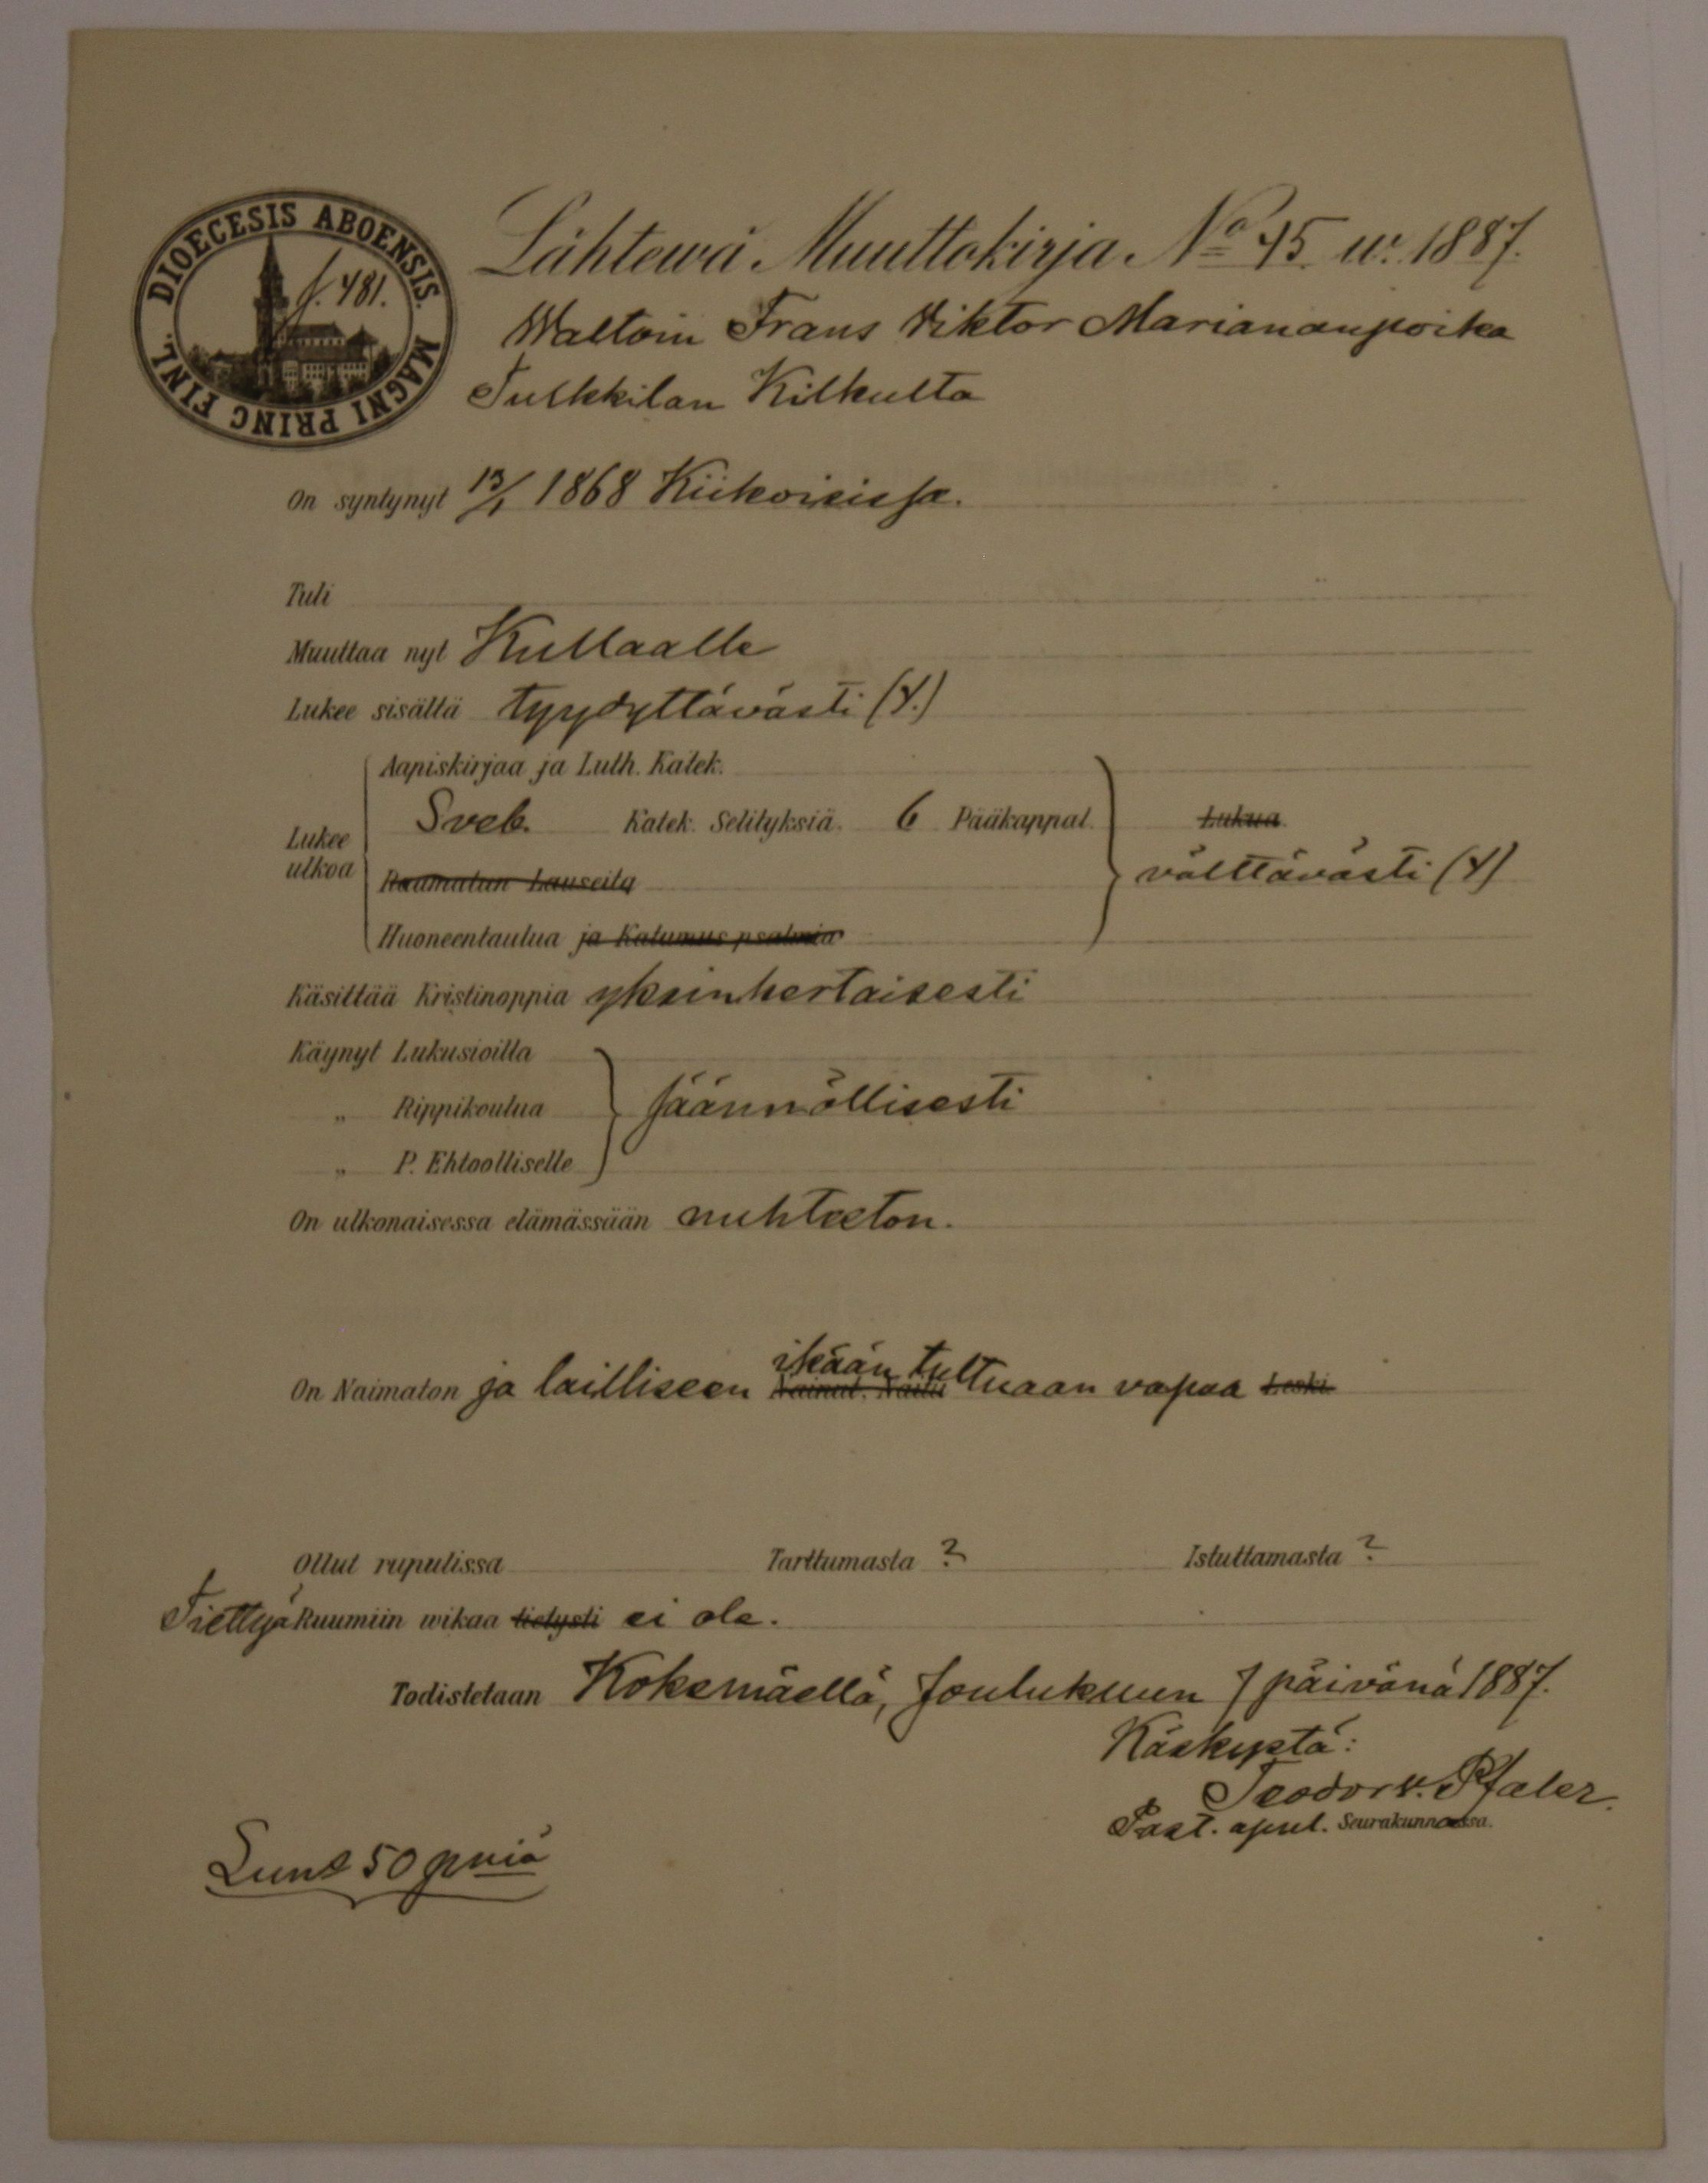 DIOECESIS ABOENSIS. MAGNI PRINC FINL.
f. 481.
Lähtewä Muuttokirja No 45 w. 1887.
Frans Viktor Mariananpoika
Tulkkilan Kilkulta
On syntynyt 13/1 1868 Kiikoisissa.
Tuli
Muuttaa nyt Kullaalle
Lukee sisältä tyydyttävästi (4.)
Aapiskirjaa ja Luth. Katek.
Lukee ulkoa
Sveb. Katek. Selityksiä. 6 Pääkappal. Lukua.
välttävästi (4)
Raamatun Lauseita
Huoneentaulua ja Katumus psalmia
Käsittää Kristinoppia yksinkertaisesti
Käynyt Lukusioilla
„ Rippikoulua Jäännöllisesti
„ P. Ehtoolliselle
On ulkonaisessa elämässään nuhteeton.
On Naimaton ja lailliseen ikään tultuaan vapaa Leski
Nainut. Naitu
Ollut rupulissa Tarttumasta ? Istuttamasta ?
Tiettyä Ruumiin wikaa tietysti ei ole.
Todistetaan Kokemäellä, Joulukuun 7 päivänä 1887.
Käskystä:
Teodor v. Pfaler.
Past. apul. Seurakunnassa.
50 pniä